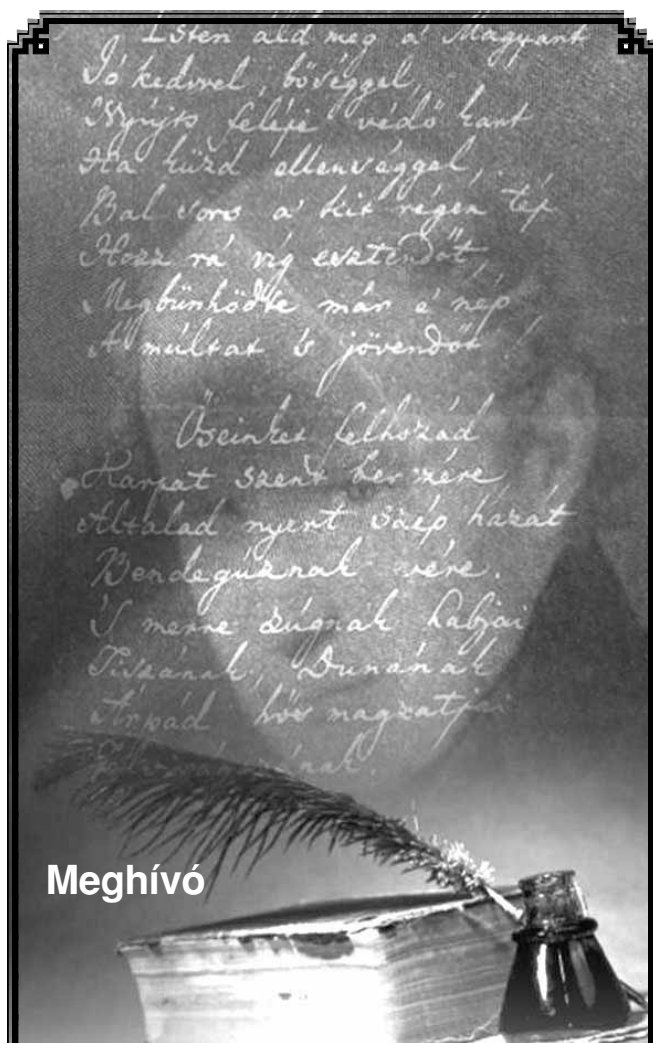 Isten áld meg a' Magyart
Jó kedvvel, bőséggel,
Nyújts feléje védő kart
Ha küzd ellenséggel,
Bal sors a' kit régen tép
Hozz rá víg esztendőt,
Megbűnhődte már e' nép
A' múltat 's jövendőt!
Őseinket felhozád
Kárpát szent bérczére
Általad nyert szép hazát
Bendegúznak vére.
'S merre zúgnak habjai
Tiszának, Dunának
Árpád hős magzatjai
Meghívó